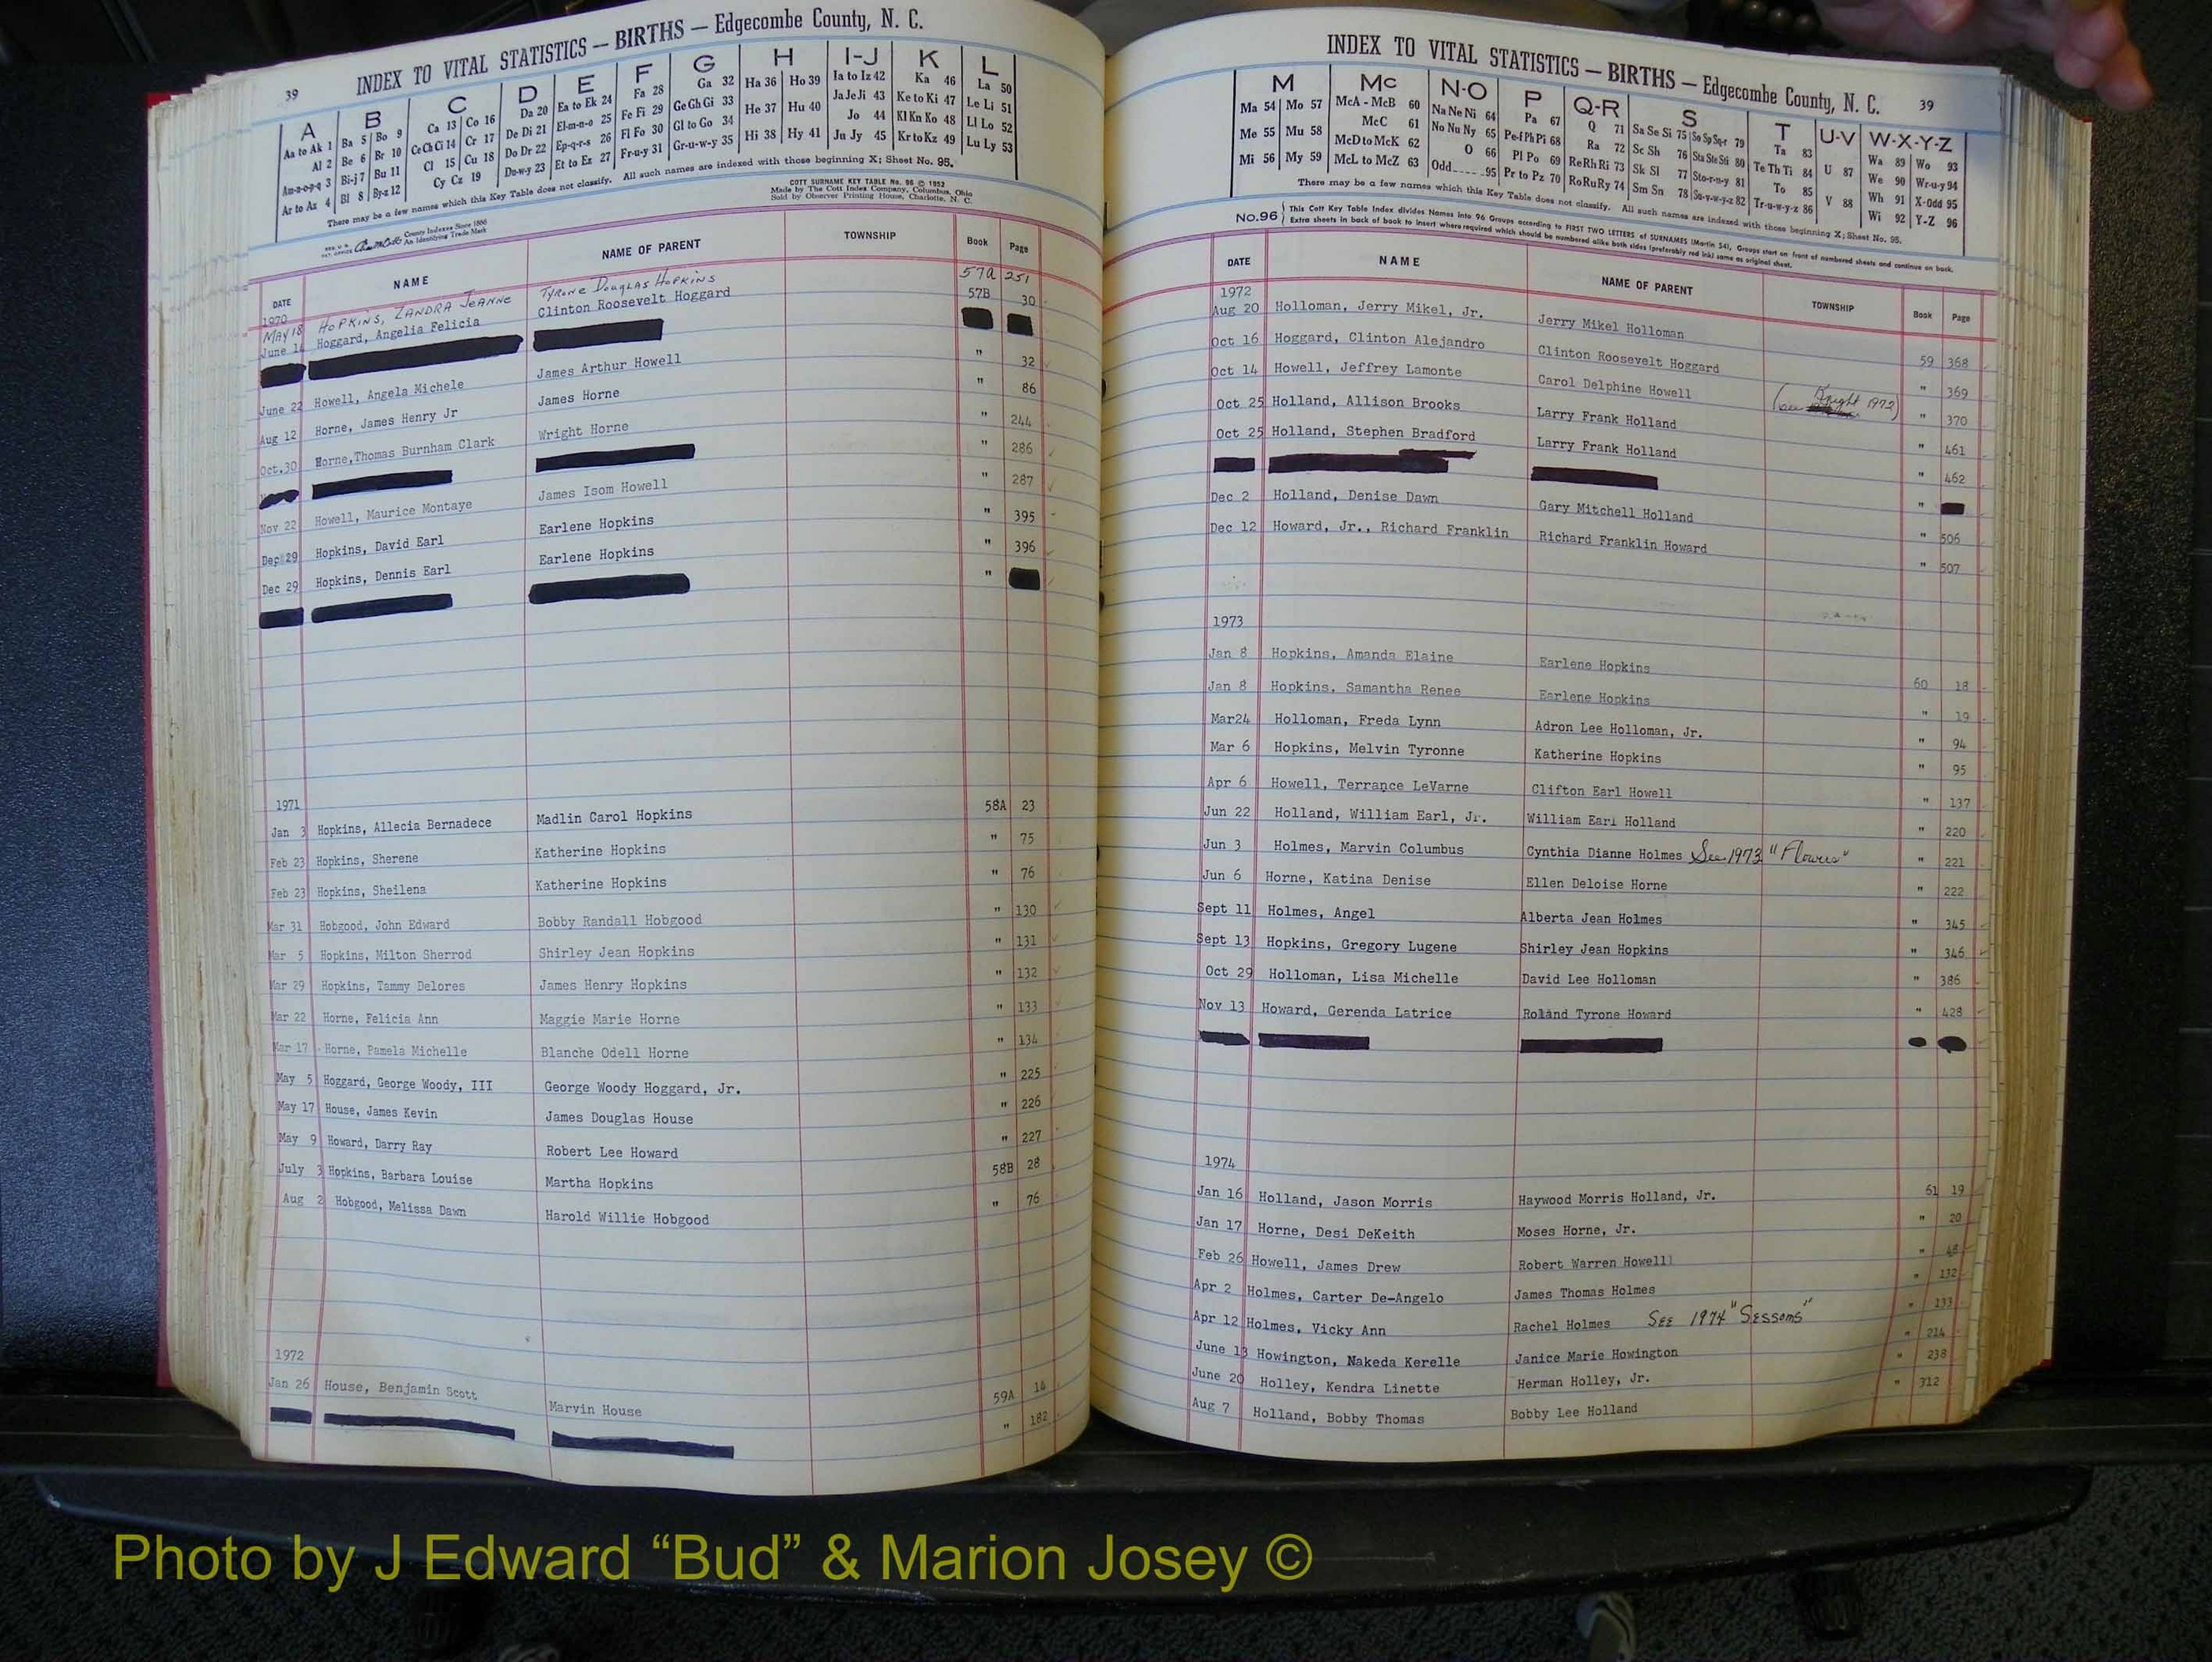 39
INDEX TO VITAL STATISTICS — BIRTHS — Edgecombe County, N. C.
A B C D E F G H I-J K L
Aa to Ak 1 Ba 5 Bo 9 Ca 13 Co 16 Da 20 Ea to Ek 24 Fa 28 Ga 32 Ha 36 Ho 39 Ia to Iz 42 Ka 46 La 50
Al 2 Be 6 Br 10 Ce Ch Ci 14 Cr 17 De Di 21 El-m-n-o 25 Fe Fi 29 Ge Gh Gi 33 He 37 Hu 40 Ja Je Ji 43 Ke to Ki 47 Le Li 51
Am-n-o-p-q 3 Bi-j 7 Bu 11 Cl 15 Cu 18 Do Dr 22 Ep-q-r-s 26 Fl Fo 30 Gl to Go 34 Hi 38 Hy 41 Jo 44 Kl Kn Ko 48 Ll Lo 52
Ar to Az 4 Bl 8 By-z 12 Cy Cz 19 Du-w-y 23 Et to Ez 27 Fr-u-y 31 Gr-u-w-y 35 Ju Jy 45 Kr to Kz 49 Lu Ly 53
There may be a few names which this Key Table does not classify. All such names are indexed with those beginning X; Sheet No. 95.
COTT SURNAME KEY TABLE No. 96 © 1952
Made by The Cott Index Company, Columbus, Ohio
Sold by Observer Printing House, Charlotte, N. C.
County Indexes Since 1888
An Identifying Trade Mark
DATE NAME NAME OF PARENT TOWNSHIP Book Page
1970
MAY 18 HOPKINS, ZANDRA JEANNE TYRONE DOUGLAS HOPKINS 57A 251
June 14 Hoggard, Angelia Felicia Clinton Roosevelt Hoggard 57B 30
June 22 Howell, Angela Michele James Arthur Howell " 32
Aug 12 Horne, James Henry Jr James Horne " 86
Oct.30 Horne,Thomas Burnham Clark Wright Horne " 244
" 286
Nov 22 Howell, Maurice Montaye James Isom Howell " 287
Dec 29 Hopkins, David Earl Earlene Hopkins " 395
Dec 29 Hopkins, Dennis Earl Earlene Hopkins " 396
"
1971
Jan 3 Hopkins, Allecia Bernadece Madlin Carol Hopkins 58A 23
Feb 23 Hopkins, Sherene Katherine Hopkins " 75
Feb 23 Hopkins, Sheilena Katherine Hopkins " 76
Mar 31 Hobgood, John Edward Bobby Randall Hobgood " 130
Mar 5 Hopkins, Milton Sherrod Shirley Jean Hopkins " 131
Mar 29 Hopkins, Tammy Delores James Henry Hopkins " 132
Mar 22 Horne, Felicia Ann Maggie Marie Horne " 133
Mar 17 Horne, Pamela Michelle Blanche Odell Horne " 134
May 5 Hoggard, George Woody, III George Woody Hoggard, Jr. " 225
May 17 House, James Kevin James Douglas House " 226
May 9 Howard, Darry Ray Robert Lee Howard " 227
July 3 Hopkins, Barbara Louise Martha Hopkins 58B 28
Aug 2 Hobgood, Melissa Dawn Harold Willie Hobgood " 76
1972
Jan 26 House, Benjamin Scott Marvin House 59A 14
" 182
INDEX TO VITAL STATISTICS — BIRTHS — Edgecombe County, N. C. 39
M Mc N-O P Q-R S T U-V W-X-Y-Z
Ma 54 Mo 57 McA - McB 60 Na Ne Ni 64 Pa 67 Q 71 Sa Se Si 75 So Sp Sq-r 79 Ta 83 U 87 Wa 89 Wo 93
Me 55 Mu 58 McC 61 No Nu Ny 65 Pe-f Ph Pi 68 Ra 72 Sc Sh 76 Sta Ste Sti 80 Te Th Ti 84 V 88 We 90 Wr-u-y 94
Mi 56 My 59 McD to McK 62 O 66 Pl Po 69 Re Rh Ri 73 Sk Sl 77 Sto-r-u-y 81 To 85 Wh 91 X-Odd 95
McL to McZ 63 Odd 95 Pr to Pz 70 Ro Ru Ry 74 Sm Sn 78 Su-v-w-y-z 82 Tr-u-w-y-z 86 Wi 92 Y-Z 96
There may be a few names which this Key Table does not classify. All such names are indexed with those beginning X; Sheet No. 95.
No.96 This Cott Key Table Index divides Names into 96 Groups according to FIRST TWO LETTERS of SURNAMES (Martin 54), Groups start on front of numbered sheets and continue on back.
Extra sheets in back of book to insert where required which should be numbered alike both sides (preferably red ink) same as original sheet.
DATE NAME NAME OF PARENT TOWNSHIP Book Page
1972
Aug 20 Holloman, Jerry Mikel, Jr. Jerry Mikel Holloman 59 368
Oct 16 Hoggard, Clinton Alejandro Clinton Roosevelt Hoggard " 369
Oct 14 Howell, Jeffrey Lamonte Carol Delphine Howell (See Knight 1972) " 370
Oct 25 Holland, Allison Brooks Larry Frank Holland " 461
Oct 25 Holland, Stephen Bradford Larry Frank Holland " 462
"
Dec 2 Holland, Denise Dawn Gary Mitchell Holland " 506
Dec 12 Howard, Jr., Richard Franklin Richard Franklin Howard " 507
1973
Jan 8 Hopkins, Amanda Elaine Earlene Hopkins 60 18
Jan 8 Hopkins, Samantha Renee Earlene Hopkins " 19
Mar24 Holloman, Freda Lynn Adron Lee Holloman, Jr. " 94
Mar 6 Hopkins, Melvin Tyronne Katherine Hopkins " 95
Apr 6 Howell, Terrance LeVarne Clifton Earl Howell " 137
Jun 22 Holland, William Earl, Jr. William Earl Holland " 220
Jun 3 Holmes, Marvin Columbus Cynthia Dianne Holmes See 1973 "Flowers" " 221
Jun 6 Horne, Katina Denise Ellen Deloise Horne " 222
Sept 11 Holmes, Angel Alberta Jean Holmes " 345
Sept 13 Hopkins, Gregory Lugene Shirley Jean Hopkins " 346
Oct 29 Holloman, Lisa Michelle David Lee Holloman " 386
Nov 13 Howard, Gerenda Latrice Roland Tyrone Howard " 428
1974
Jan 16 Holland, Jason Morris Haywood Morris Holland, Jr. 61 19
Jan 17 Horne, Desi DeKeith Moses Horne, Jr. " 20
Feb 26 Howell, James Drew Robert Warren Howell " 48
Apr 2 Holmes, Carter De-Angelo James Thomas Holmes " 132
Apr 12 Holmes, Vicky Ann Rachel Holmes SEE 1974 "SESSOMS" " 133
June 13 Howington, Nakeda Kerelle Janice Marie Howington " 214
June 20 Holley, Kendra Linette Herman Holley, Jr. " 238
Aug 7 Holland, Bobby Thomas Bobby Lee Holland " 312
Photo by J Edward “Bud” & Marion Josey ©